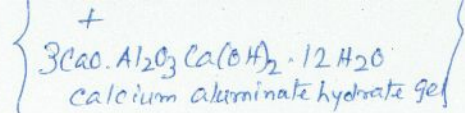 +
3CaO.Al2O3 Ca(OH)2.12H2O
calcium aluminate hydrate gel